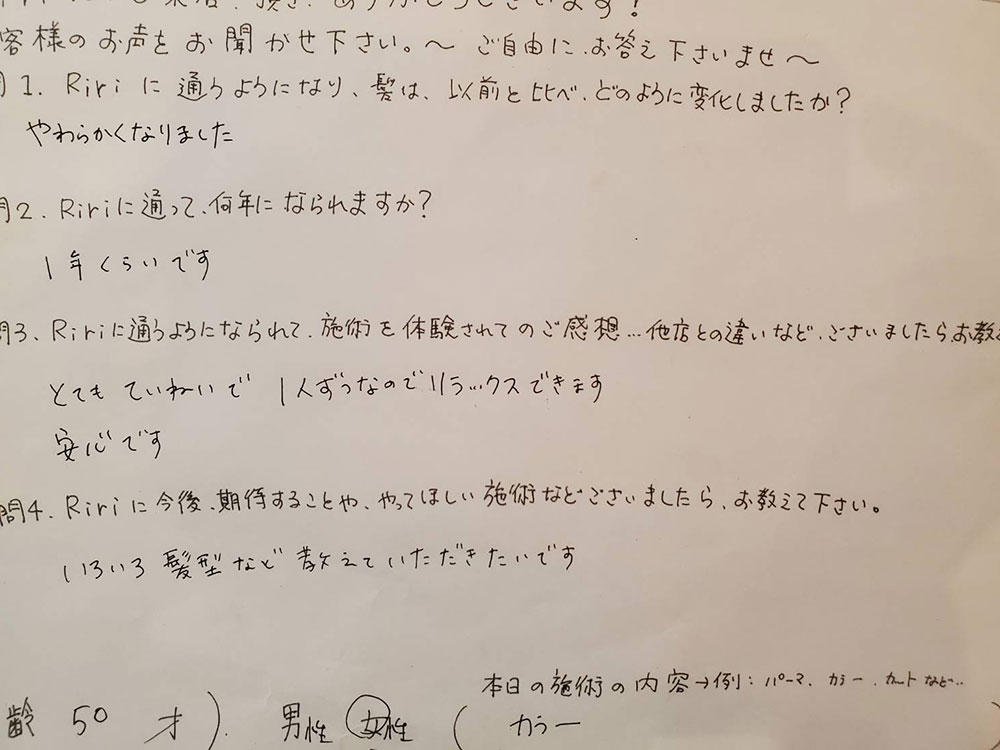 来店頂き、ありがとうございます!
客様のお声をお聞かせ下さい。～ ご自由に、お答え下さいませ～
問1. Ririに通うようになり、髪は、以前と比べ、どのように変化しましたか?
やわらかくなりました
問2. Ririに通って、何年になられますか?
1年くらいです
問3、Ririに通うようになられて、施術を体験されてのご感想…他店との違いなど、ございましたら、お教え
とても ていねいで 1人ずつなのでリラックスできます
安心です
問4. Ririに今後、期待することや、やってほしい施術などございましたら、お教えて下さい。
いろいろ髪型など教えていただきたいです
本日の施術の内容→例:パーマ、カラー、カットなど…
齢 50 才). 男性 女性 ( カラー )